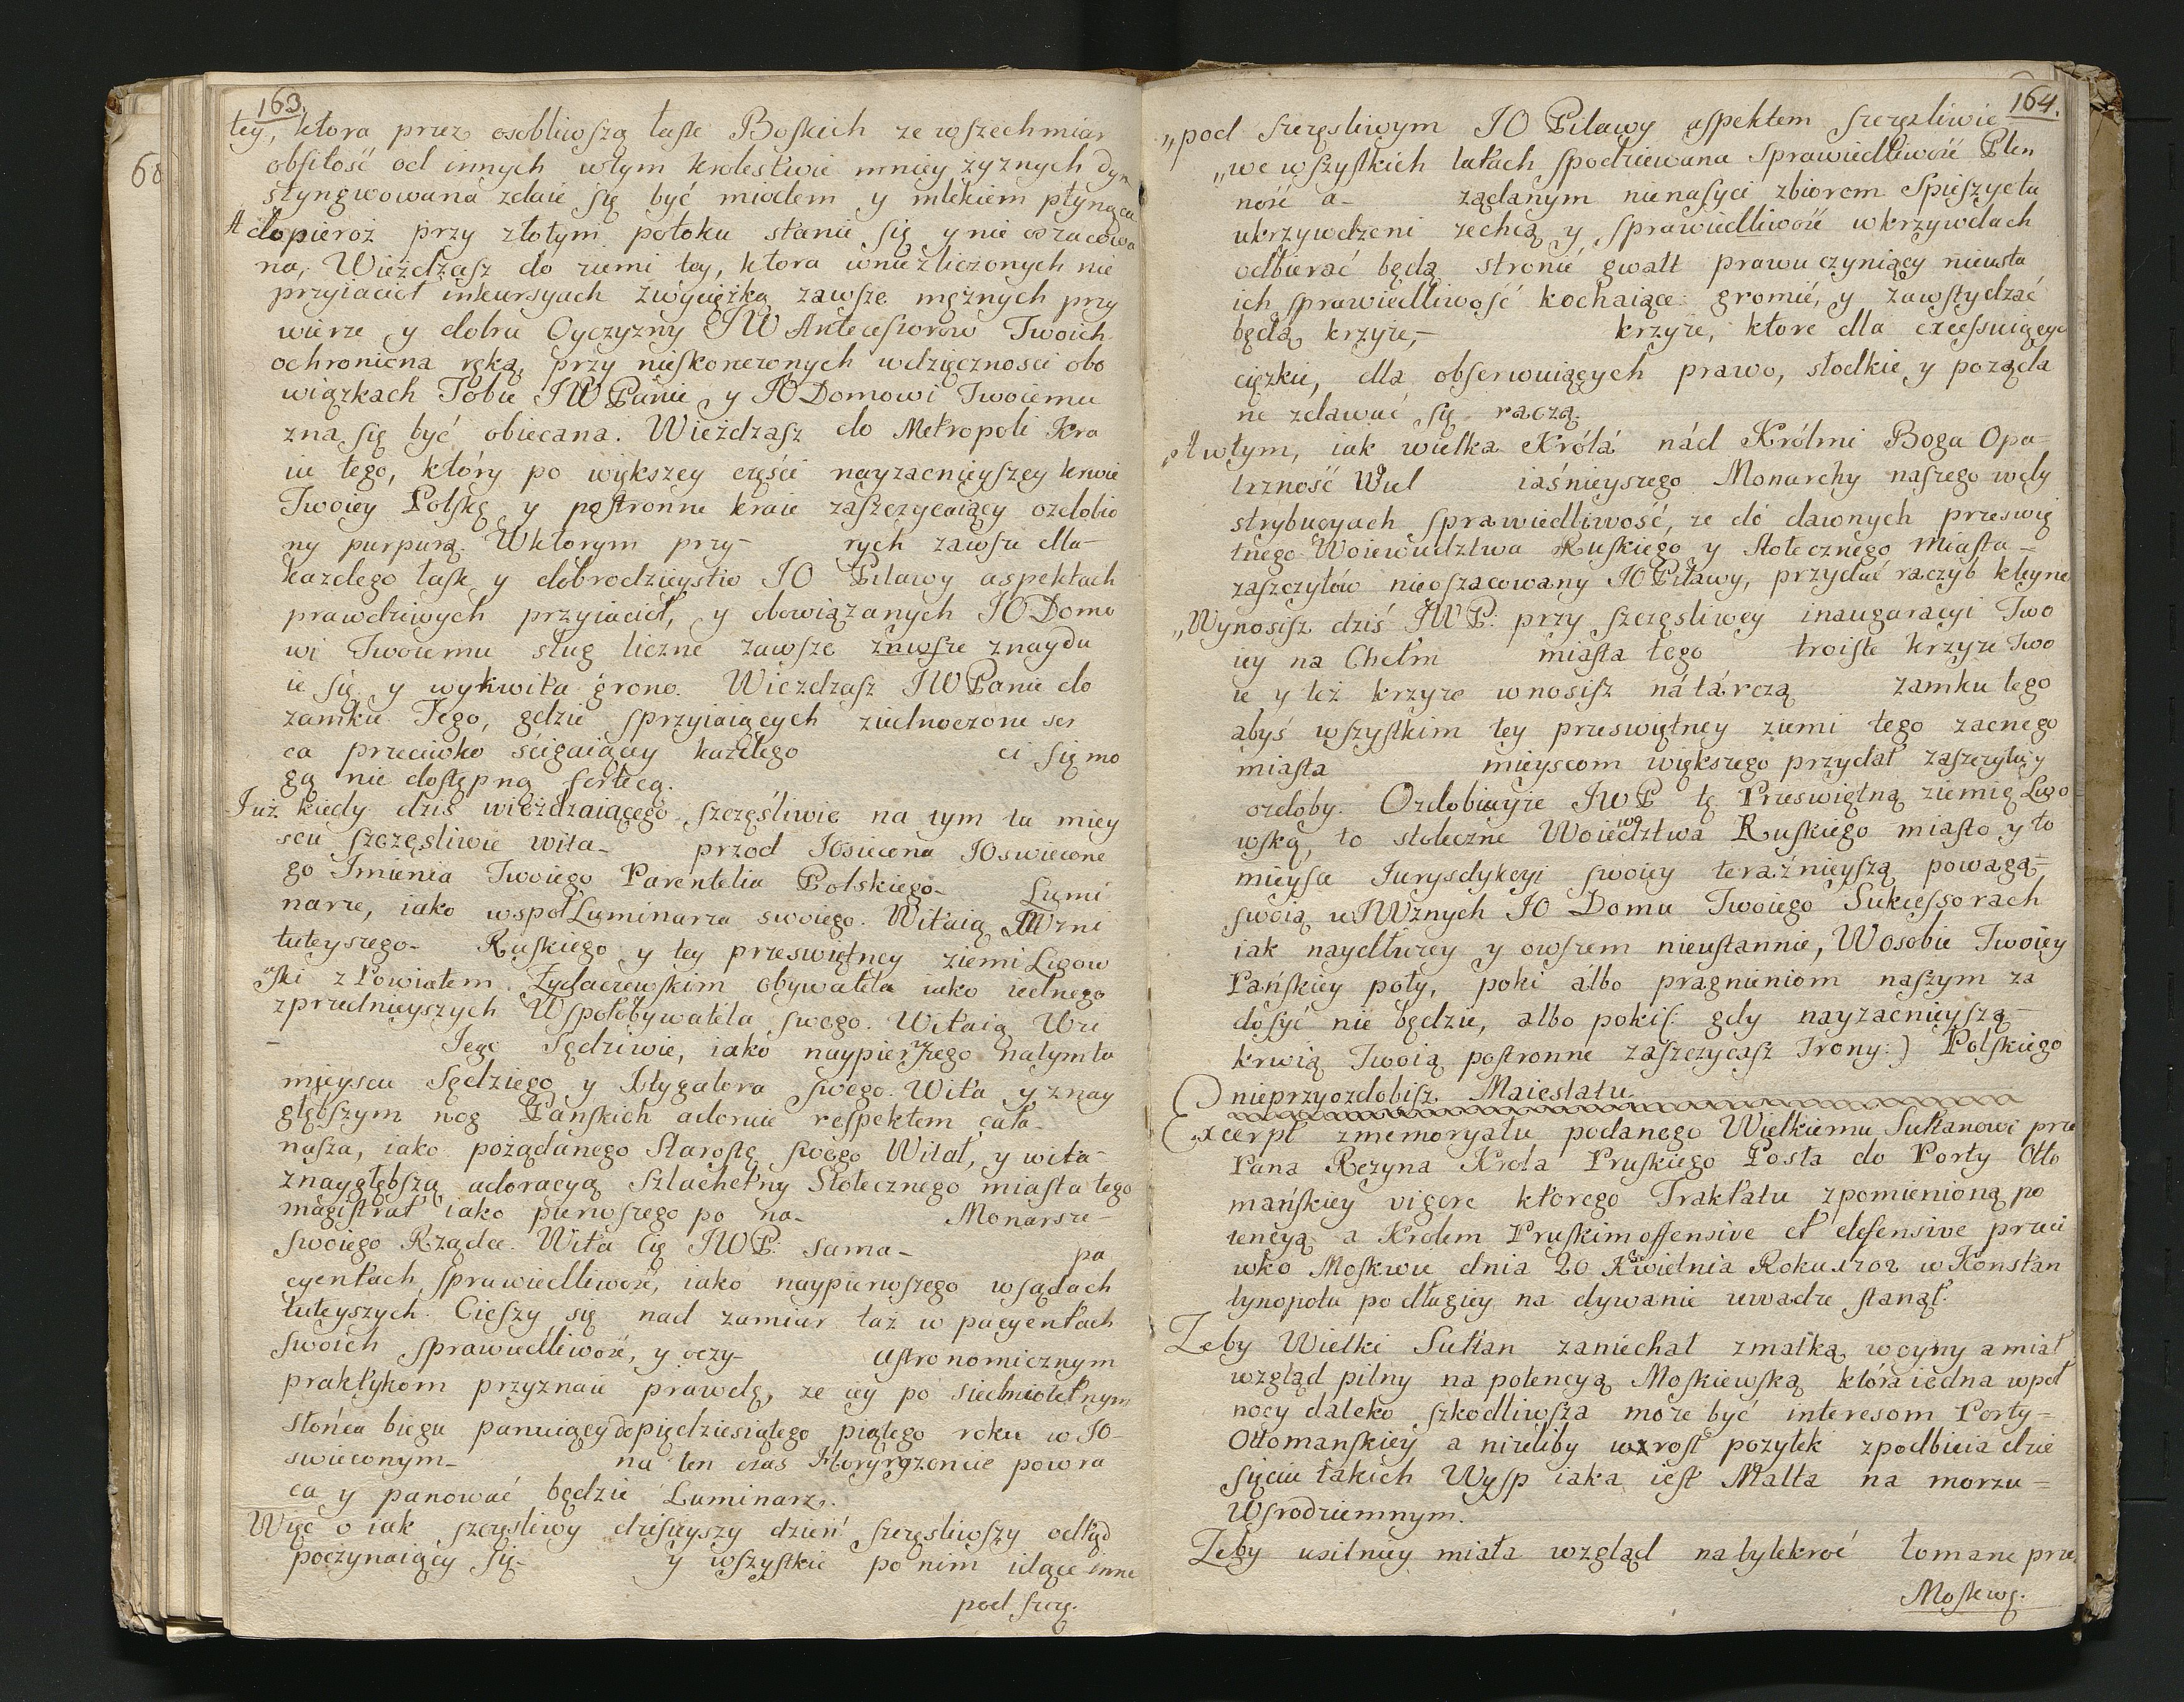 163.
tey, ktora przez osobliwszą łask Boskich ze wszechmiar
obfitość od innych wtym krolestwie mniey żyznych dyn
styngwowana zdaie się być miodem y mlekiem płynąca
A dopieroż przy złotym potoku stanie się y nie oszacowa
na, Wieżdżasz do ziemi tey, ktora wniezliczonych nie
przyiacioł inkursyach zwyciężką zawsze mężnych przy
wierze y dobru Oyczyzny JW Antecessorow Twoich
ochroniona ręką, przy nieskonczonych wdzięcznosci obo
wiązkach Tobie JWPanie y JO Domowi Twoiemu
zna się być obiecana. Wieżdzasz do Metropoli Kra
iu tego, który po większey części nayzacnieyszey krwie
Twoiey Polskę y postronne kraie zaszczycaiący ozdobio
ny purpurą. Wktorym przy- rych zawsze dla-
kazdego łask y dobrodzieystw JO Pilawy aspektach
prawdziwych przyiacioł, y obowiązanych JO Domo
wi Twoiemu sług liczne zawsze znawsze znaydu
ie się y wykwita grono. Wiezdzasz JWPanie do
zamku Tego, gdzie sprzyiaiących ziednoczone ser
ca przeciwko ścigaiący każdego ci się mo
gą nie dostępną fortecą.
Już kiedy dziś wieżdzaiącego szczęśliwie na tym tu miey
scu szczęsliwie wita- przod JOsiecona JOswiecone
go Imienia Twoiego Parentelia Polskiego- Lumi
narze, iako wspoł Luminarza swoiego. Witaią JWzni
tuteyszego- Ruskiego y tey przeswiętney ziemi Lwow
ski z Powiatem Zydaczewskim obywatela iako iednego
zprzednieyszych Wspołobywatela swego. Witaią Wu
- Jego Sędziwie, iako naypierwszego natymto
mieyscu Sędziego y Istygatora swego. Wita y znay
głębszym nog Pańskich adoruie respektem cała-
nasza, iako pożądanego Starostę swego Witał, y wita-
znaygłębszą adoracyą Szlachetny Stołecznego miasta tego
magistrat iako pierwszego po na- Monarsze-
swoiego Rządce. Wita Cię JWP. sama- pa
cyentach sprawiedliwość, iako naypierwszego wsądach
tuteyszych. Cieszy się nad zamiar taż w pacyentach
swoich sprawiedliwość, y oczy- Astronomicznym
praktykom przyznaie prawdę, ze iey po siedmioletnym
słońca biegu panuiący do pięćdziesiątego piątego roku w JO-
swieconym- na ten czas Horyzoncie powra
ca y panować będzie Luminarz.
Więc o iak szczęsliwy dzisieyszy dzień szczęsliwszy odtąd
poczynaiący się- y wszystkie po nim idące inne
pod szczę.
164.
„pod szczęsliwym JO Pilawy aspektem szczęsliwie
„we wszystkich latach spodziewana sprawiedliwość Plen
ność a- ządanym nienasyci zbiorem Spieszyć tu
ukrzywdzeni zechcą y sprawiedliwość wkrzywdach
odbierać będą stronić gwałt prawu czyniący nieusta
ich sprawiedliwość kochaiące gromić, y zawstydzać
będą krzyże,- krzyże, ktore dla excessuiącyc
ciężkie, dla obserwuiących prawo, słodkie y poząda
ne zdawać się raczą.
„A wtym, iak wielka Królá nád Królmi Boga Opa-
trzność Wiel iaśnieyszego Monarchy naszego wdy
strybucyach sprawiedliwość, ze dó dawnych przeswię
tnego Woiewudztwa Ruskiego y stołecznego miasta-
zaszczytów nieoszacowany JO Pilawy, przydać raczył kleyno
„Wynosisz dziś JWP. przy szczęsliwey inauguracyi Two
iey na Chełm miasta tego troiste krzyże Two
ie y też krzyze wnosisz ná tárczą zamku tego
abyś wszystkim tey przeswiętney ziemi tego zacnego
miasta mieyscom większego przydał zaszczytu y
ozdoby. Ozdobiayże JWP tę Przeswiętną ziemię Lwo
wską, to stołeczne Woiewodztwa Ruskiego miasto y to
mieysce Jurysdykcyi swoiey teraźnieyszą powagą-
swoią u JWżnych JO Domu Twoiego Sukcessorach
iak naydłużey y owszem nieustannie, Wosobie Twoiey
Pańskiey poty, poki álbo pragnieniom naszym za
dosyć nie będzie, albo pokis. gdy nayzacnieyszą-
krwią Twoią postronne zaszczycasz Trony:) Polskiego
nieprzyozdobisz Maiestatu.
Excerpt zmemoryału podanego Wielkiemu Sułtanowi prze
Pana Rezyna Krola Pruskiego Posła do Porty Otto
mańskiey vigore ktorego Traktatu zpomienioną po
tencyą a Krolem Pruskim offensive et defensive przeci
wko Moskwie dnia 20 Kwietnia Roku 1762 w Konstan
tynopolu po długiey na dywanie uwadze stanął.
Zeby Wielki Sułtan zaniechał zmałką woyny a miał
wzgląd pilny na potencyą Moskiewską która iedna wpoł
nocy daleko szkodliwsza może być interesom Porty-
Ottomanskiey a nizeliby wzrost pozytek zpodbicia dzie
sięciu takich Wysp iaka iest Malta na morzu-
Wsrodziemnym.
Zeby usilniey miała wzgląd na tylekroć łomane prze
Moskwę.